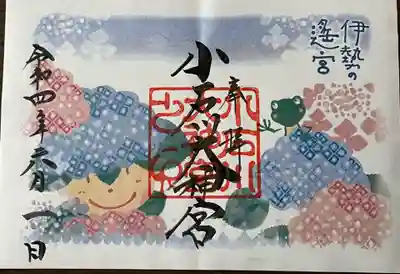 伊勢の
遙宮
奉拝
小石川大神宮
令和四年六月一日